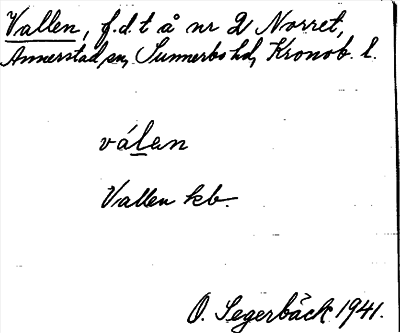 Vallen, f.d. t å nr 2 Norret,
Annerstad sn, Sunnerbo hd, Kronob. l.
válen
Vallen kb.
O. Segerbäck 1941.